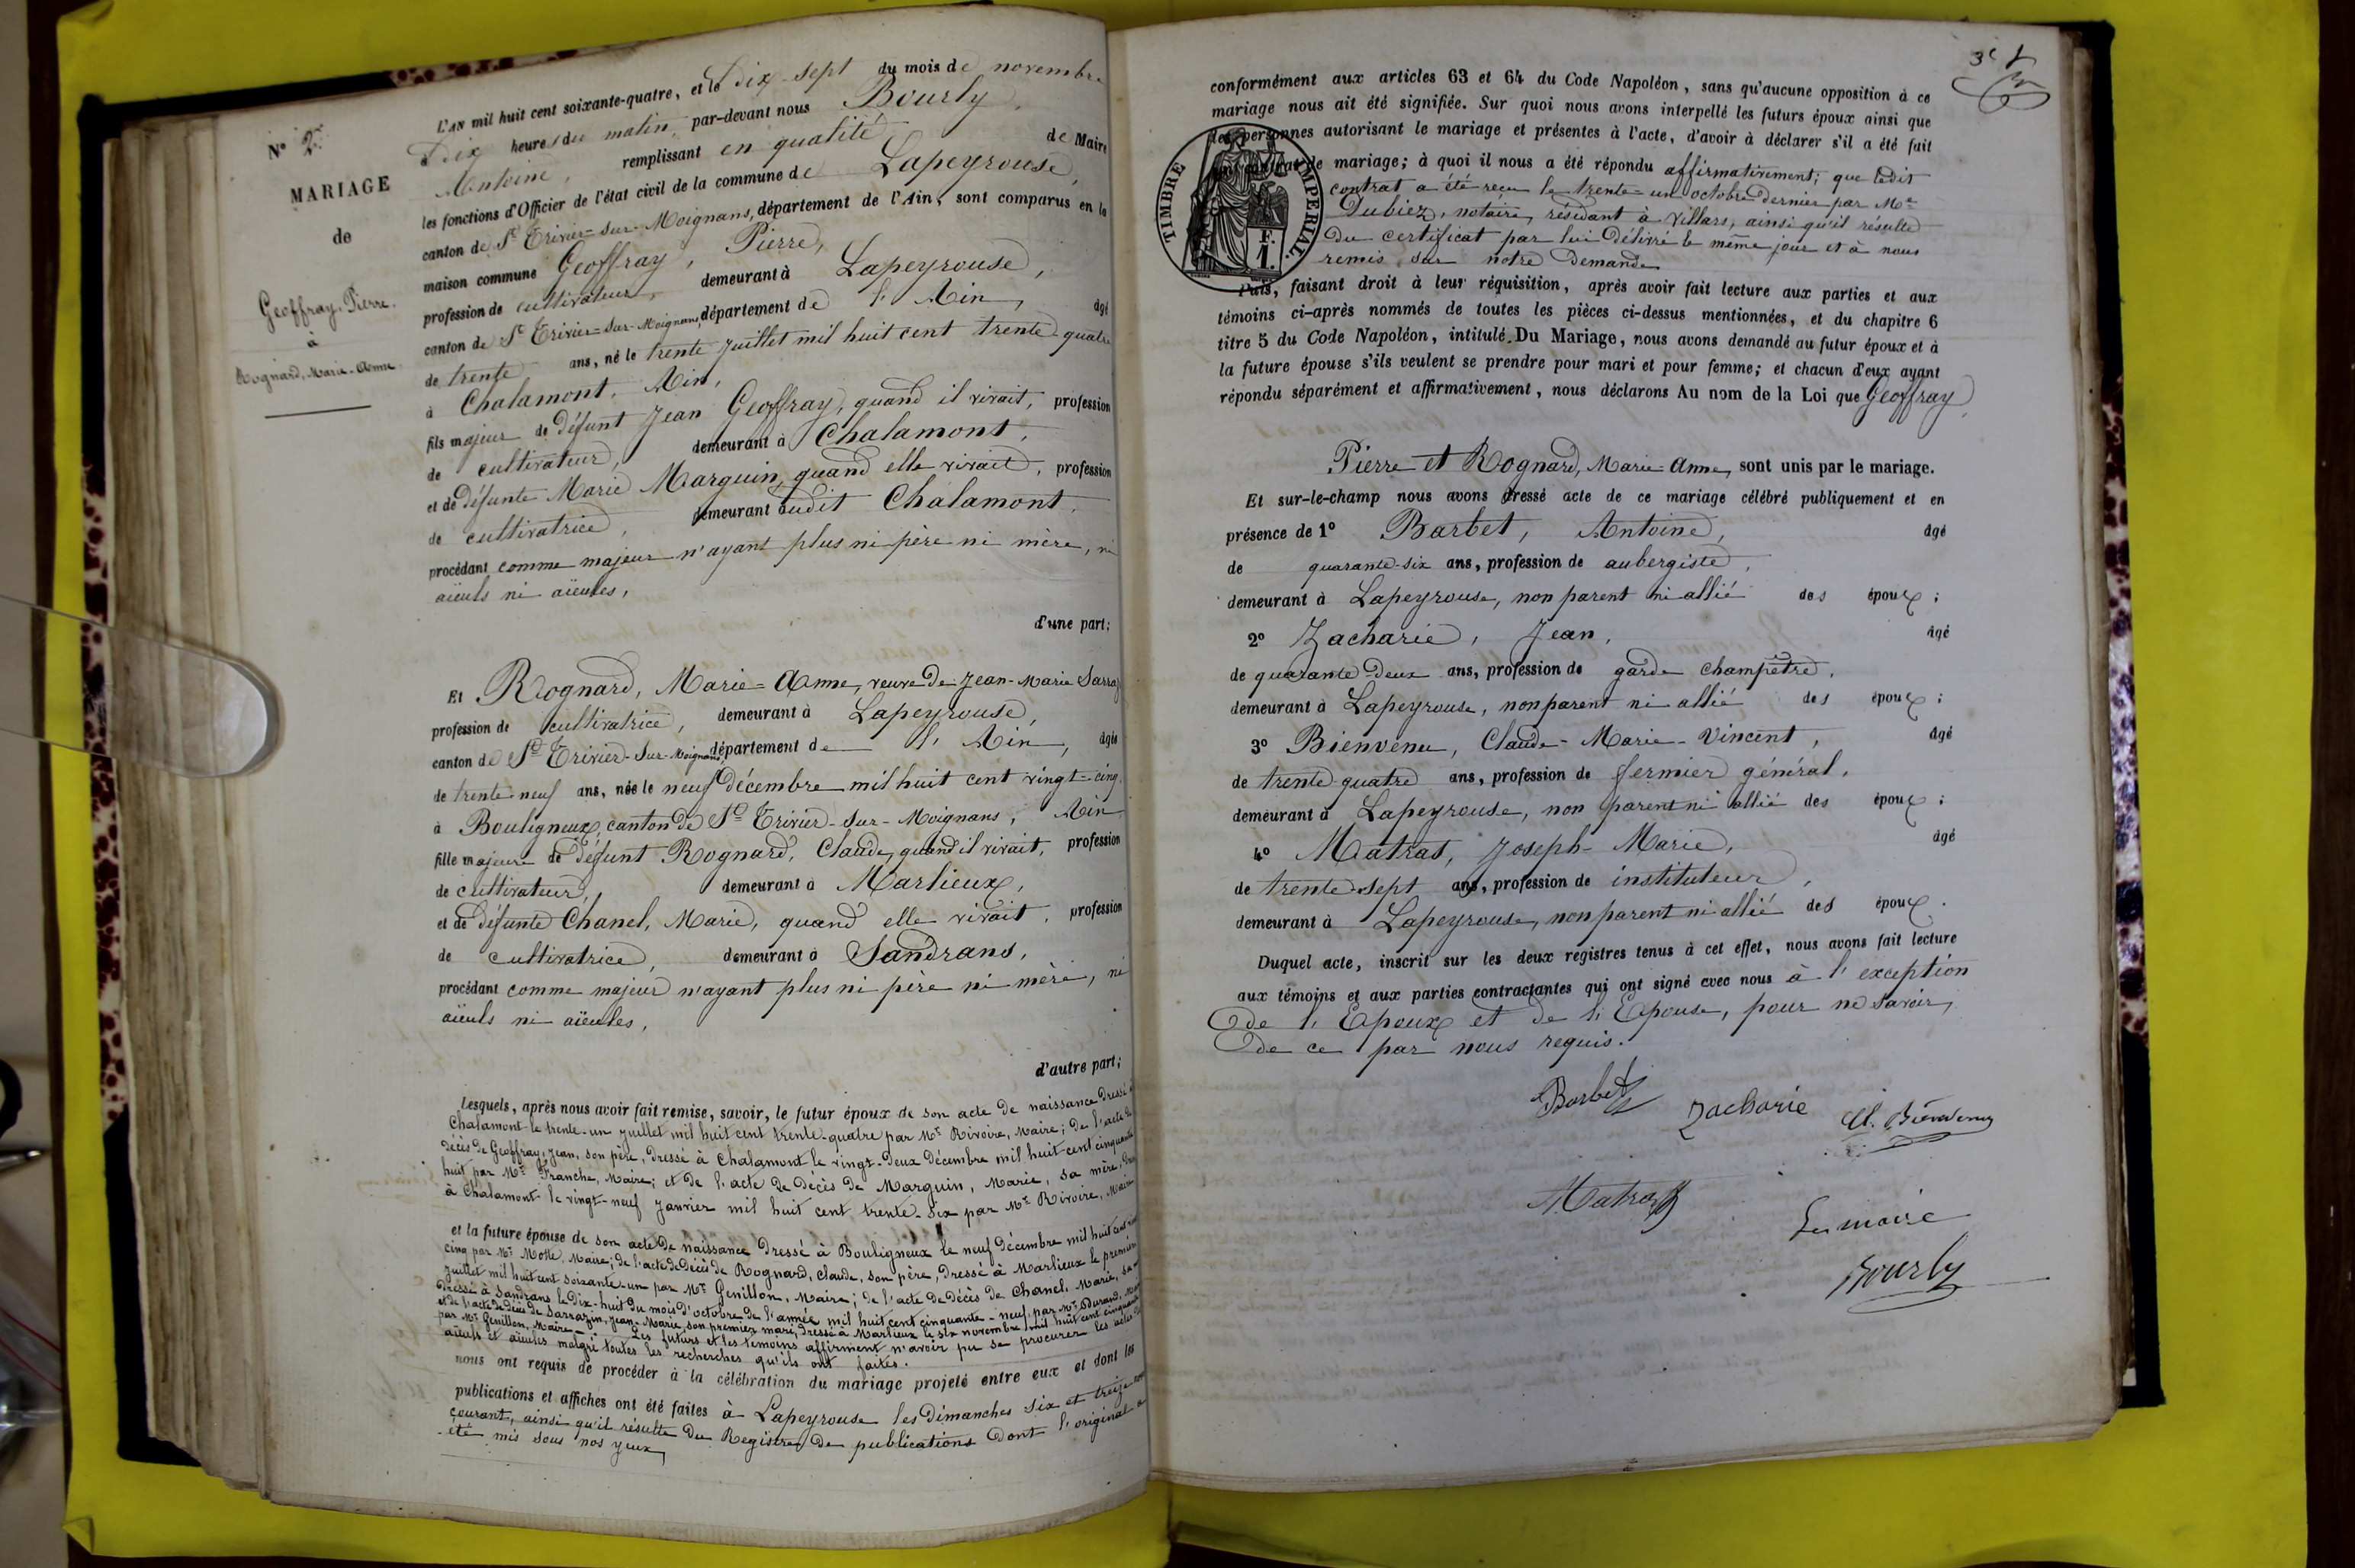 N° 2
MARIAGE
de
Geoffray, Pierre.
à
Rognard, Marie-Anne.
L'AN mil huit cent soixante-quatre, et le dix-sept du mois de novembre
à Dix heures du matin, par-devant nous Bourly,
Antoine, remplissant en qualité de Maire
les fonctions d'Officier de l'état civil de la commune de Lapeyrouse,
canton de St Trivier-sur-Moignans, département de l'Ain, sont comparus en la
maison commune Geoffray, Pierre,
profession de cultivateur, demeurant à Lapeyrouse,
canton de St Trivier-sur-Moignans, département de l'Ain, âgé
de trente ans, né le trente juillet mil huit cent trente-quatre
à Chalamont, Ain,
fils majeur de défunt Jean Geoffray, quand il vivait, profession
de cultivateur, demeurant à Chalamont,
et de défunte Marie Marguin, quand elle vivait, profession
de cultivatrice, demeurant audit Chalamont,
procédant comme majeur n'ayant plus ni père ni mère, ni
aïeuls ni aïeules,
d'une part;
Et Rognard, Marie-Anne, veuve de Jean-Marie
profession de cultivatrice, demeurant à Lapeyrouse,
canton de St Trivier-sur-Moignans, département de l'Ain, âgée
de trente-neuf ans, née le neuf décembre mil huit cent vingt-cinq
à Bouligneux, canton de St Trivier-sur-Moignans, Ain
fille majeure de défunt Rognard, Claude, quand il vivait, profession
de cultivateur, demeurant à Marlieux,
et de défunte Chanel, Marie, quand elle vivait, profession
de cultivatrice, demeurant à Sandrans,
procédant comme majeur n'ayant plus ni père ni mère, ni
aïeuls ni aïeules,
d'autre part;
Lesquels, après nous avoir fait remise, savoir, le futur époux de son acte de naissance dressé à
Chalamont le trente-un juillet mil huit cent trente-quatre par Mr Rivoire, Maire; de l'acte de
décès de Geoffray, Jean, son père, dressé à Chalamont le vingt-deux décembre mil huit cent cinquante
huit par Mr Franche, Maire; et de l'acte de décès de Marguin, Marie, sa mère,
à Chalamont le vingt-neuf janvier mil huit cent trente-six par Mr Rivoire, Maire
et la future épouse de son acte de naissance dressé à Bouligneux le neuf décembre mil huit cent
cinq par Mr Maire; de l'acte de décès de Rognard, Claude, son père, dressé à Marlieux le premier
juillet mil huit cent soixante-un par Mr Genillon, Maire; de l'acte de décès de Chanel, Marie, sa
dressé à Sandrans le dix-huit du mois d'octobre de l'année mil huit cent cinquante-neuf, par Mr Durand,
et de l'acte de décès de Sarrazin, Jean-Marie, son premier mari, dressé à Marlieux le six novembre mil huit cent cinquante
par Mr Genillon, Maire. Les futurs et les témoins affirment n'avoir pu se procurer les actes
aïeuls et aïeules malgré toutes les recherches qu'ils ont faites.
nous ont requis de procéder à la célébration du mariage projeté entre eux et dont les
publications et affiches ont été faites à Lapeyrouse les Dimanches six et treize
courant, ainsi qu'il résulte du Registre de publications dont l'original a
été mis sous nos yeux,
conformément aux articles 63 et 64 du Code Napoléon, sans qu'aucune opposition à ce
mariage nous ait été signifiée. Sur quoi nous avons interpellé les futurs époux ainsi que
les personnes autorisant le mariage et présentes à l'acte, d'avoir à déclarer s'il a été fait
de mariage; à quoi il nous a été répondu affirmativement; que ledit
contrat a été reçu le trente-un octobre dernier par Me
Dubiez, notaire, résidant à Villars, ainsi qu'il résulte
du certificat par lui délivré le même jour et à nous
remis sur notre demande
TIMBRE IMPERIAL.
1 F.
Puis, faisant droit à leur réquisition, après avoir fait lecture aux parties et aux
témoins ci-après nommés de toutes les pièces ci-dessus mentionnées, et du chapitre 6
titre 5 du Code Napoléon, intitulé Du Mariage, nous avons demandé au futur époux et à
la future épouse s'ils veulent se prendre pour mari et pour femme; et chacun d'eux ayant
répondu séparément et affirmativement, nous déclarons Au nom de la Loi que Geoffray,
Pierre et Rognard, Marie-Anne, sont unis par le mariage.
Et sur-le-champ nous avons dressé acte de ce mariage célébré publiquement et en
présence de 1° Barbet, Antoine, âgé
de quarante-six ans, profession de aubergiste,
demeurant à Lapeyrouse, non parent ni allié des époux;
2° Zacharie, Jean, âgé
de quarante deux ans, profession de garde champêtre,
demeurant à Lapeyrouse, non parent ni allié des époux;
3° Bienvenu, Claude-Marie-Vincent, âgé
de trente-quatre ans, profession de fermier général,
demeurant à Lapeyrouse, non parent ni allié des époux;
4° Matras, Joseph-Marie, âgé
de trente-sept ans, profession de instituteur,
demeurant à Lapeyrouse, non parent ni allié des époux.
Duquel acte, inscrit sur les deux registres tenus à cet effet, nous avons fait lecture
aux témoins et aux parties contractantes qui ont signé avec nous à l'exception
de l'Epoux et de l'Epouse, pour ne savoir,
de ce par nous requis.
Barbet Zacharie Cl. Bienvenu
Matras
Le maire
Bourly